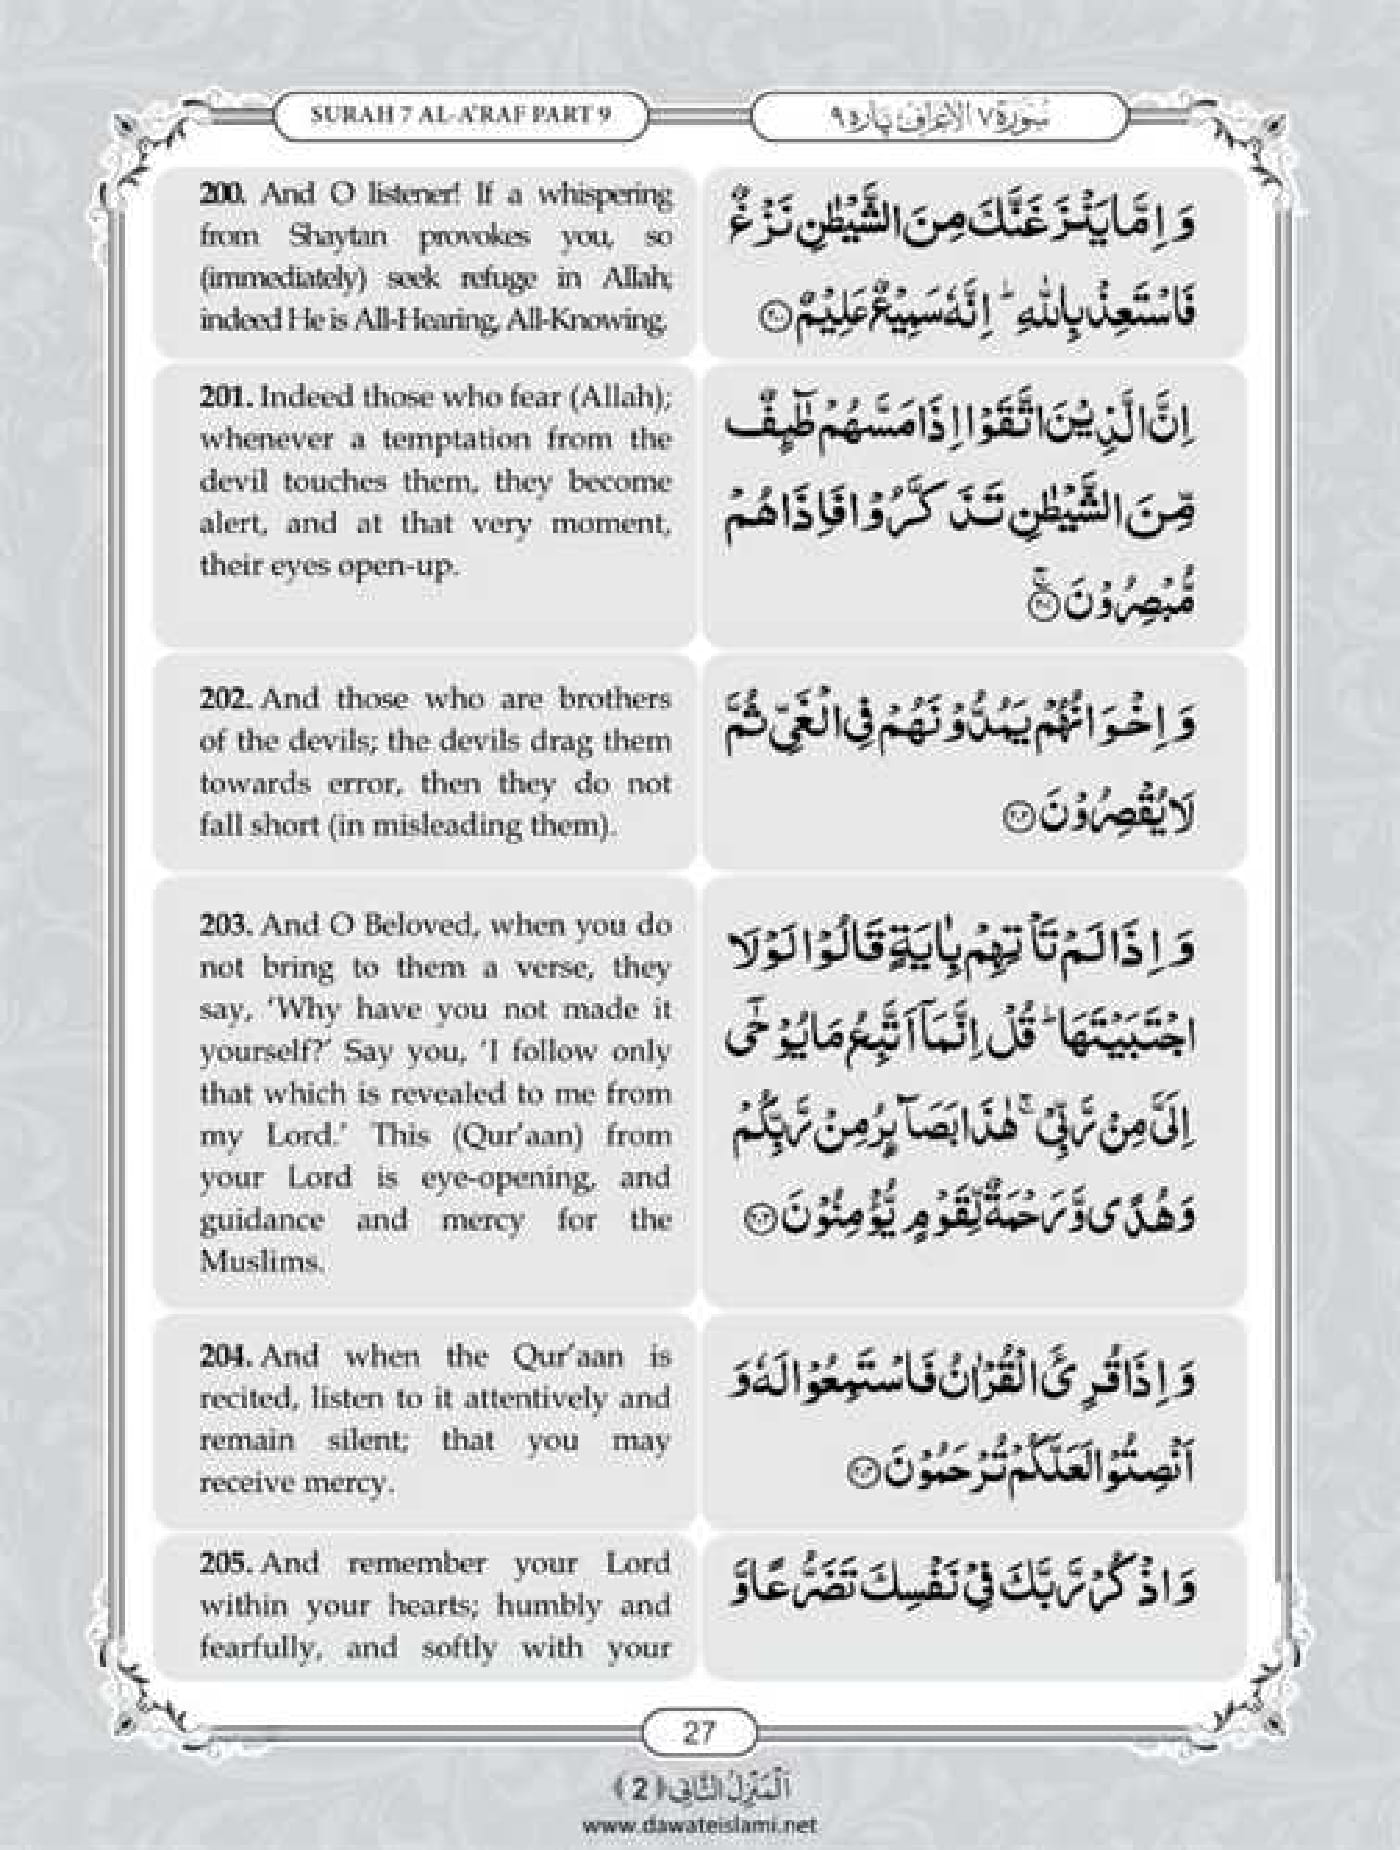 SURAH 7 AL-A'RAF PART 9
سُوْرَةُ ٧ الْاَعْرَاف پَارَه ٩
200. And O listener! If a whispering
from Shaytan provokes you, so
(immediately) seek refuge in Allah;
indeed He is All-Hearing, All-Knowing.
وَ اِمَّا یَنْزَغَنَّكَ مِنَ الشَّیْطٰنِ نَزْغٌ
فَاسْتَعِذْ بِاللّٰهِ ؕ اِنَّهٗ سَمِیْعٌ عَلِیْمٌ ﴿۲۰۰﴾
201. Indeed those who fear (Allah);
whenever a temptation from the
devil touches them, they become
alert, and at that very moment,
their eyes open-up.
اِنَّ الَّذِیْنَ اتَّقَوْا اِذَا مَسَّهُمْ طٰٓىِٕفٌ
مِّنَ الشَّیْطٰنِ تَذَكَّرُوْا فَاِذَا هُمْ
مُّبْصِرُوْنَ ﴿۲۰۱﴾ۚ
202. And those who are brothers
of the devils; the devils drag them
towards error, then they do not
fall short (in misleading them).
وَ اِخْوَانُهُمْ یَمُدُّوْنَهُمْ فِی الْغَیِّ ثُمَّ
لَا یُقْصِرُوْنَ ﴿۲۰۲﴾
203. And O Beloved, when you do
not bring to them a verse, they
say, 'Why have you not made it
yourself?' Say you, 'I follow only
that which is revealed to me from
my Lord.' This (Qur'aan) from
your Lord is eye-opening, and
guidance and mercy for the
Muslims.
وَ اِذَا لَمْ تَاْتِهِمْ بِاٰیَةٍ قَالُوْا لَوْلَا
اجْتَبَیْتَهَا ؕ قُلْ اِنَّمَاۤ اَتَّبِعُ مَا یُوْحٰۤى
اِلَیَّ مِنْ رَّبِّیْ ۚ هٰذَا بَصَآىِٕرُ مِنْ رَّبِّكُمْ
وَ هُدًى وَّ رَحْمَةٌ لِّقَوْمٍ یُّؤْمِنُوْنَ ﴿۲۰۳﴾
204. And when the Qur'aan is
recited, listen to it attentively and
remain silent; that you may
receive mercy.
وَ اِذَا قُرِئَ الْقُرْاٰنُ فَاسْتَمِعُوْا لَهٗ وَ
اَنْصِتُوْا لَعَلَّكُمْ تُرْحَمُوْنَ ﴿۲۰۴﴾
205. And remember your Lord
within your hearts; humbly and
fearfully, and softly with your
وَ اذْكُرْ رَّبَّكَ فِیْ نَفْسِكَ تَضَرُّعًا وَّ
27
اَلْمَنْزِلُ الثَّانِی ﴿2﴾
www.dawateislami.net